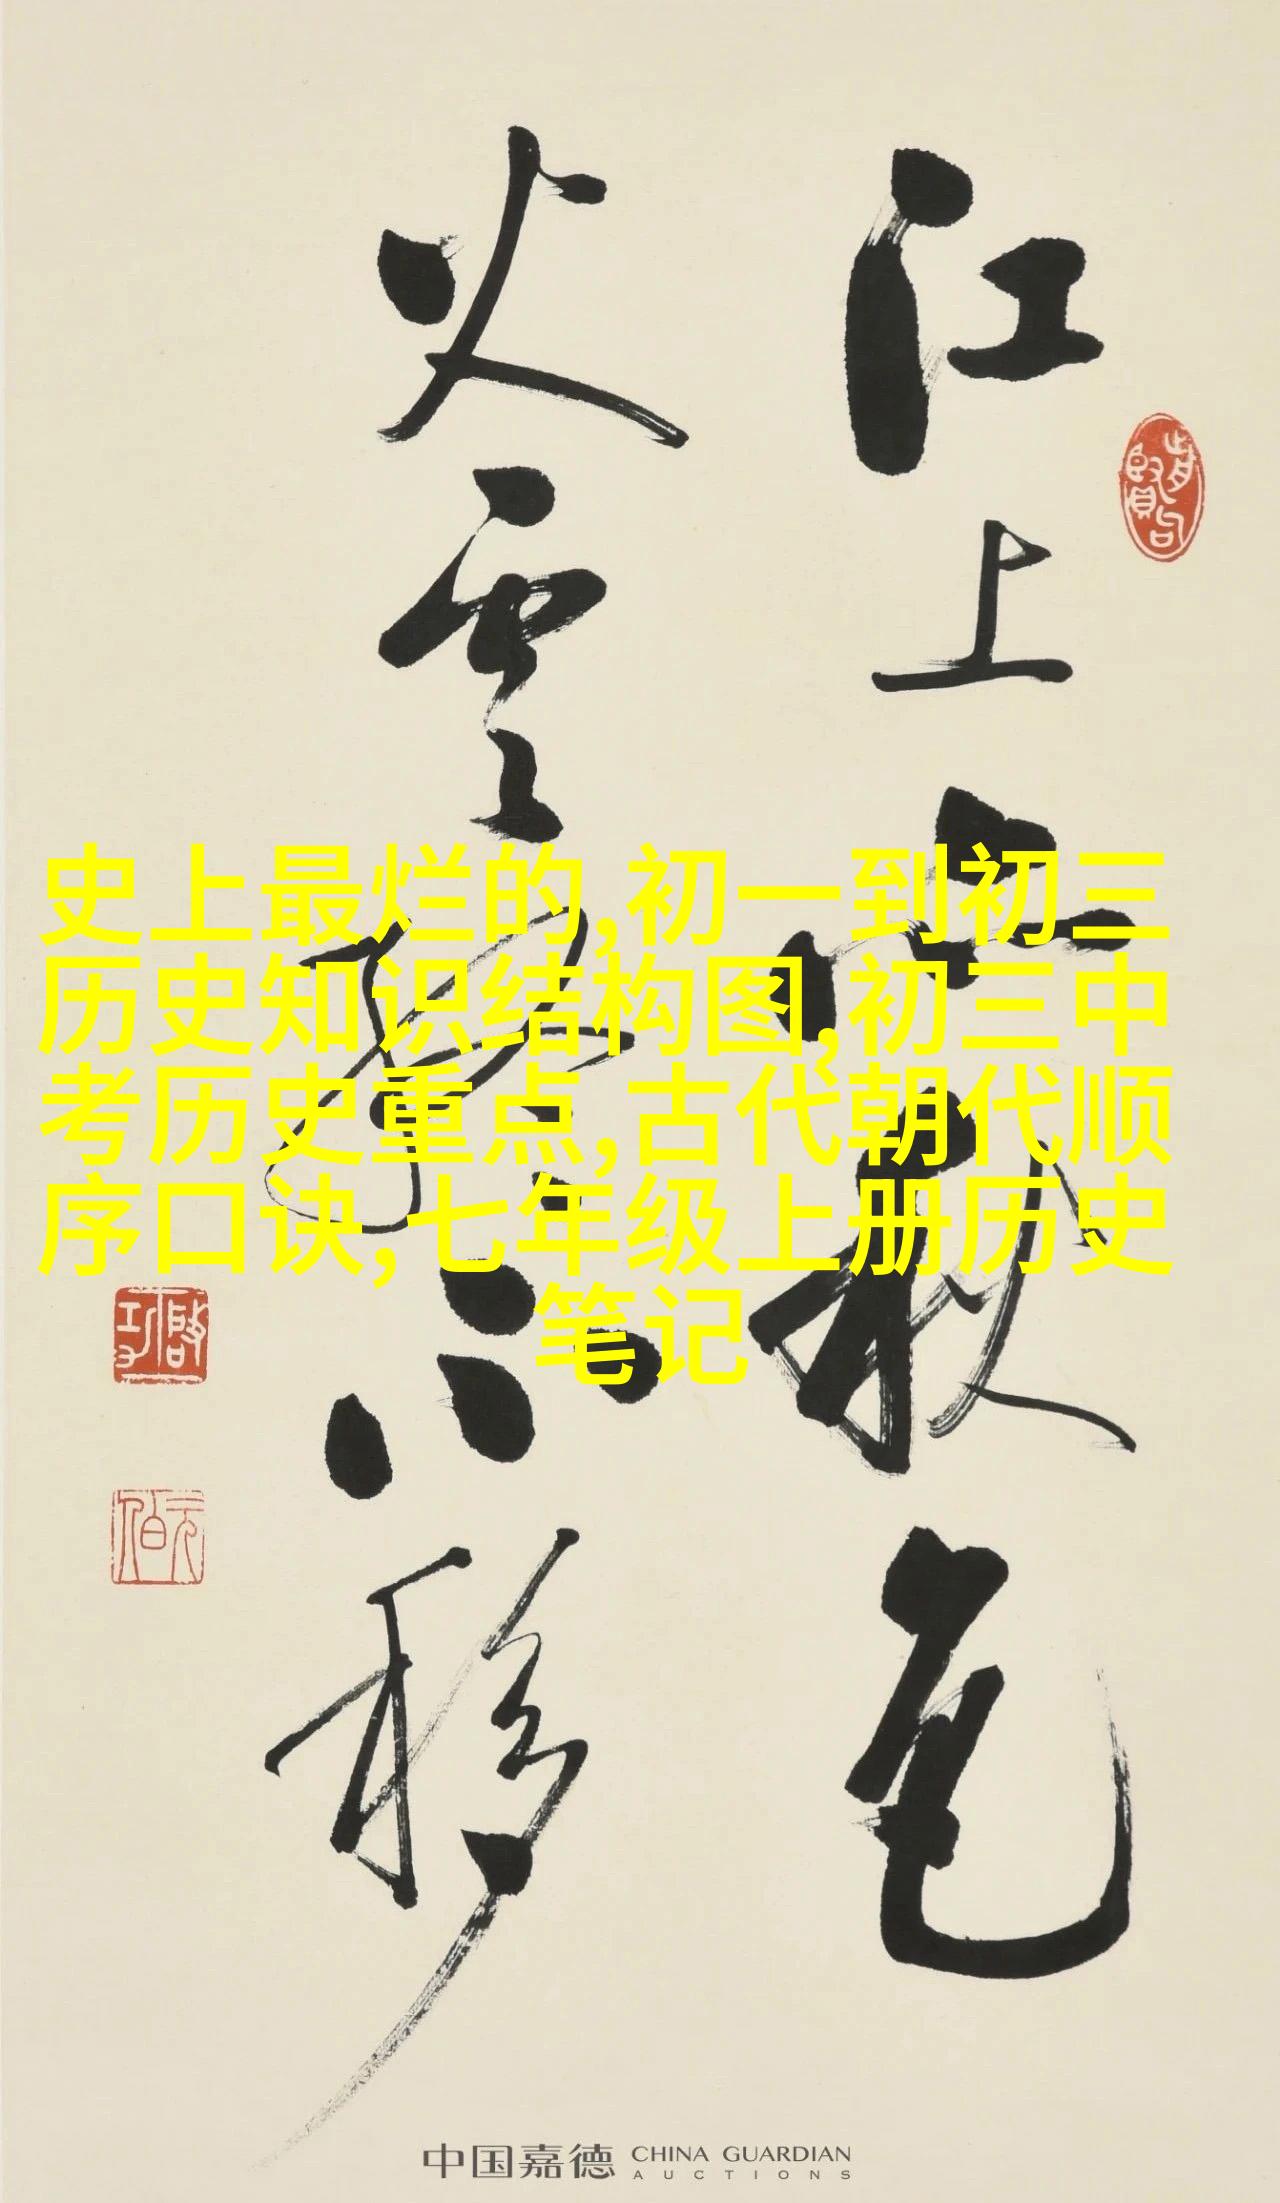 江上亦秋色
火雲終不移
啟功
元白
史上最烂的,初一到初三
历史知识结构图,初三中
考历史重点,古代朝代顺
序口诀,七年级上册历史
笔记
中国嘉德 CHINA GUARDIAN
AUCTIONS